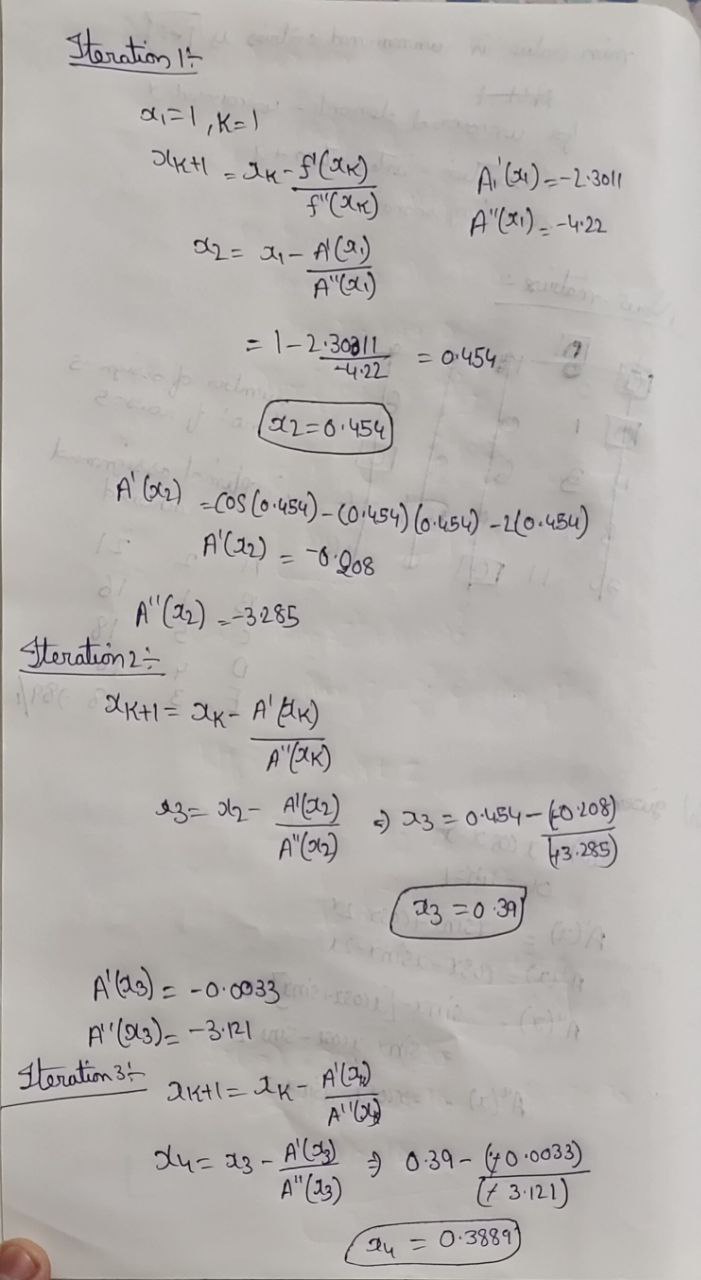 Iteration 1:-
x₁=1, K=1
xK+1 = xK - f'(xK)/f"(xK)
A₁'(x₁) = -2.3011
A"(x₁) = -4.22
x₂ = x₁ - A'(x₁)/A"(x₁)
= 1 - 2.30311/-4.22 = 0.454
x₂ = 0.454
A'(x₂) = cos(0.454) - (0.454)(0.454) - 2(0.454)
A'(x₂) = -0.208
A"(x₂) = -3.285
Iteration 2:-
xK+1 = xK - A'(xK)/A"(xK)
x₃ = x₂ - A'(x₂)/A"(x₂) ⇒ x₃ = 0.454 - (-0.208)/(+3.285)
x₃ = 0.39
A'(x₃) = -0.0033
A"(x₃) = -3.121
Iteration 3:-
xK+1 = xK - A'(x)/A"(x)
x₄ = x₃ - A'(x₃)/A"(x₃) ⇒ 0.39 - (+0.0033)/(+3.121)
x₄ = 0.3889